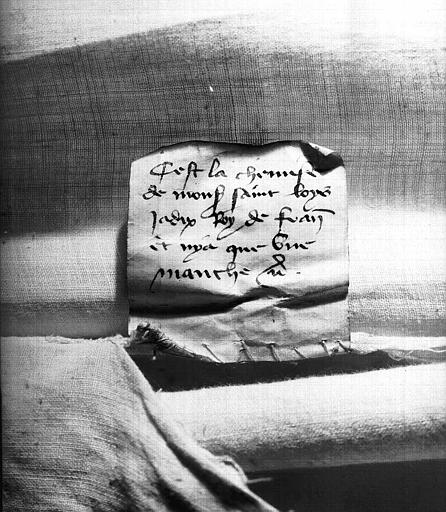 C'est la chemise
de mons saint loys
Jadix Roy de fran
et nya que une
manche